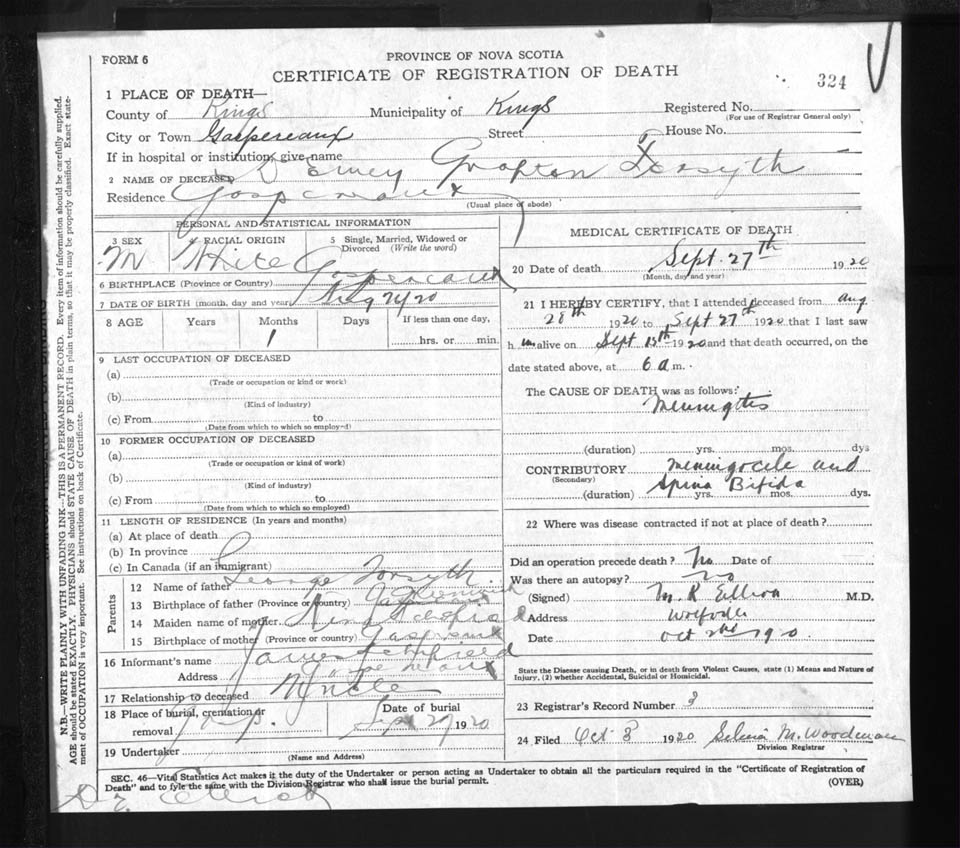 FORM 6
PROVINCE OF NOVA SCOTIA
CERTIFICATE OF REGISTRATION OF DEATH
324
1 PLACE OF DEATH—
County of Kings Municipality of Kings Registered No.
(For use of Registrar General only)
City or Town Gaspereaux Street House No.
If in hospital or institution, give name
2 NAME OF DECEASED Grafton Forsyth
Residence Gaspereaux
(Usual place of abode)
PERSONAL AND STATISTICAL INFORMATION
3 SEX 4 RACIAL ORIGIN 5 Single, Married, Widowed or Divorced (Write the word)
M White
6 BIRTHPLACE (Province or Country) Gaspereaux
7 DATE OF BIRTH (month, day and year) Aug 20
8 AGE Years Months Days If less than one day,
1 hrs. or min.
9 LAST OCCUPATION OF DECEASED
(a)
(Trade or occupation or kind or work)
(b)
(Kind of industry)
(c) From to
(Date from which to which so employed)
10 FORMER OCCUPATION OF DECEASED
(a)
(Trade or occupation or kind of work)
(b)
(Kind of industry)
(c) From to
(Date from which to which so employed)
11 LENGTH OF RESIDENCE (In years and months)
(a) At place of death
(b) In province
(c) In Canada (if an immigrant)
Parents
12 Name of father George Forsyth
13 Birthplace of father (Province or country)
14 Maiden name of mother Schofield
15 Birthplace of mother (Province or country) Gaspereaux
16 Informant's name James Schofield
Address Gaspereaux
17 Relationship to deceased Uncle
18 Place of burial, cremation or removal Gasp. Date of burial Sept 29 1920
19 Undertaker
(Name and Address)
MEDICAL CERTIFICATE OF DEATH
20 Date of death Sept. 27th 1920
(Month, day and year)
21 I HEREBY CERTIFY, that I attended deceased from Aug.
28th 1920 to Sept 27th 1920 that I last saw
h im alive on Sept 15th 1920 and that death occurred, on the
date stated above, at 6 a m.
The CAUSE OF DEATH was as follows:
Meningitis
(duration) yrs. mos. dys
CONTRIBUTORY Meningocile and
(Secondary) Spina Bifida
(duration) yrs. mos. dys.
22 Where was disease contracted if not at place of death?
Did an operation precede death? No Date of
Was there an autopsy? No
(Signed) M. R. Elliott M.D.
Address Wolfville
Date Oct 2nd 1920
State the Disease causing Death, or in death from Violent Causes, state (1) Means and Nature of
Injury, (2) whether Accidental, Suicidal or Homicidal.
23 Registrar's Record Number 3
24 Filed Oct 3 1920 M. Woodman
Division Registrar
SEC. 46—Vital Statistics Act makes it the duty of the Undertaker or person acting as Undertaker to obtain all the particulars required in the "Certificate of Registration of
Death" and to fyle the same with the Division Registrar who shall issue the burial permit. (OVER)
Elliott
N.B.—WRITE PLAINLY WITH UNFADING INK—THIS IS A PERMANENT RECORD. Every item of information should be carefully supplied.
AGE should be stated EXACTLY. PHYSICIANS should STATE CAUSE OF DEATH in plain terms, so that it may be properly classified. Exact state-
ment of OCCUPATION is very important. See instructions on back of Certificate.